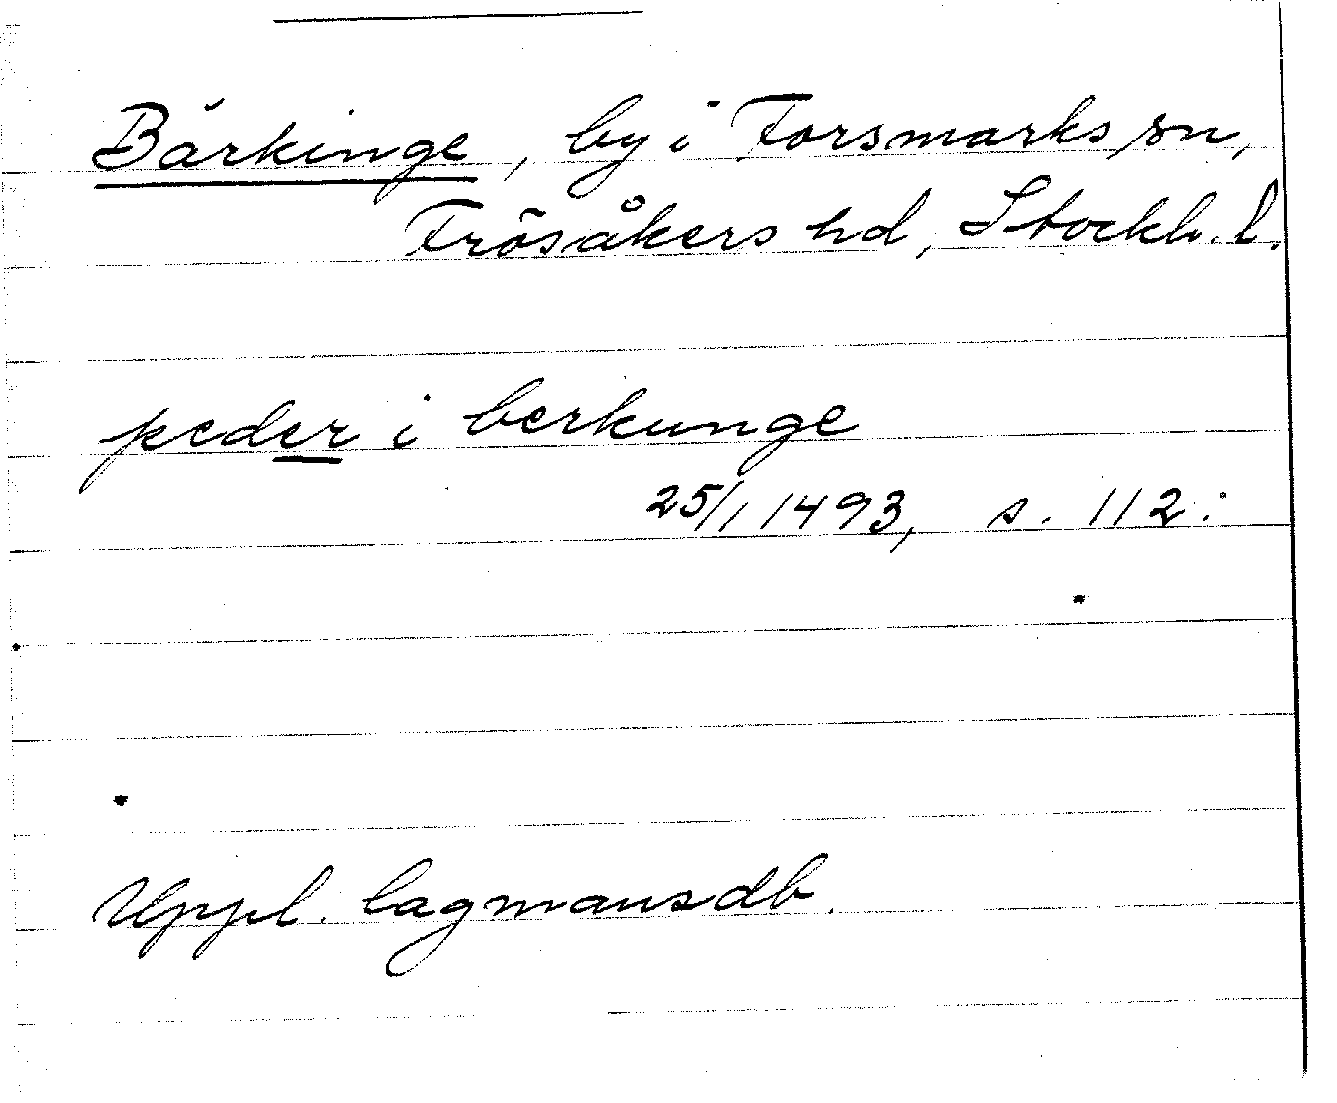 Bärkinge, by i Forsmarks sn,
Frösåkers hd, Stockh. l.
peder i berkunge
25/1 1493, s. 112.
Uppl. lagmansdb.